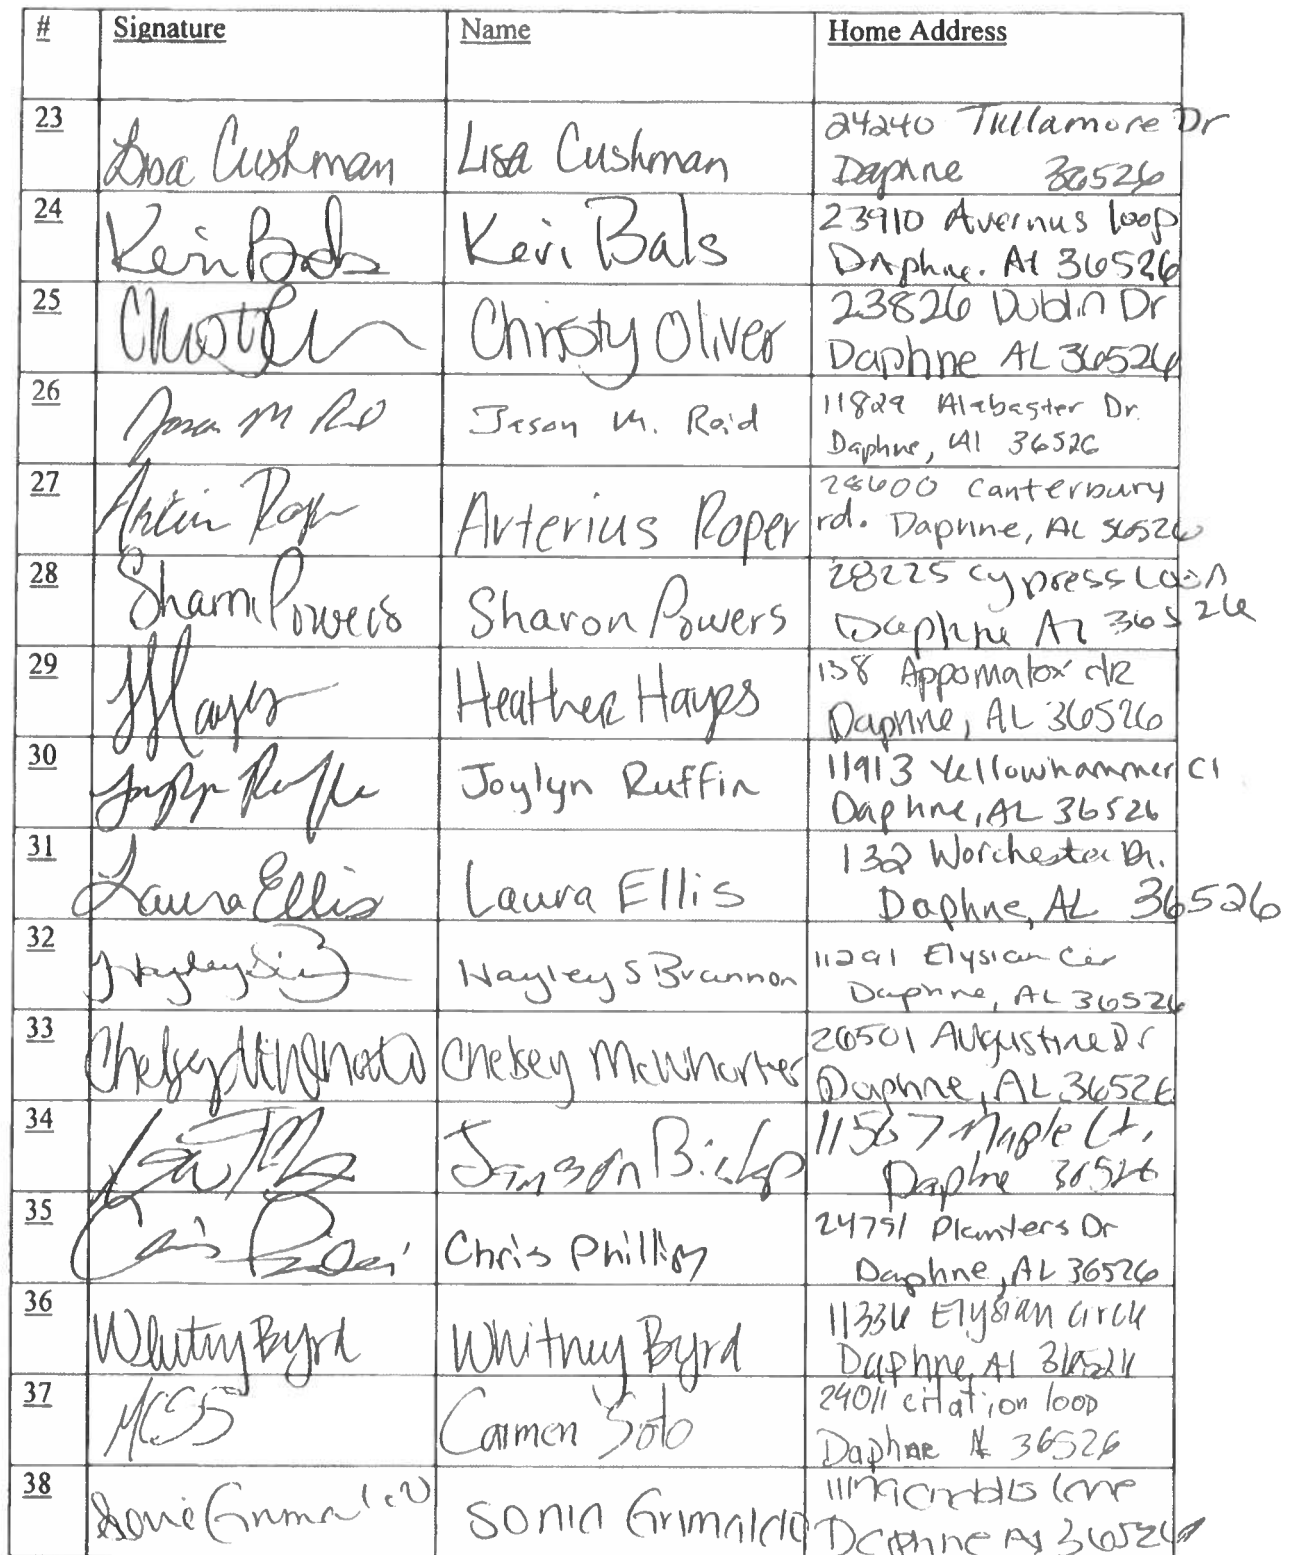 # Signature Name Home Address
23 Lisa Cushman Lisa Cushman 24240 Tullamore Dr
Daphne 36526
24 Keri Bals Keri Bals 23910 Avernus loop
Daphne. Al 36526
25 Christy Oliver 23826 Dublin Dr
Daphne AL 36526
26 Jason M Jason M. Reid 11829 Alabaster Dr.
Daphne, Al 36526
27 Roper Arterius Roper 28600 Canterbury
rd. Daphne, AL 36526
28 Sharon Powers Sharon Powers 28225 Cypress Loop
Daphne Al 36526
29 Hayes Heather Hayes 138 Appomatox dr
Daphne, AL 36526
30 Joylyn Ruffin 11913 Yellowhammer Ct
Daphne, AL 36526
31 Laura Ellis Laura Ellis 132 Worchester Dr.
Daphne, AL 36526
32 Hayley Hayley S Brannon 11291 Elysian Cir
Daphne, AL 36526
33 Chelsey McWhorter Chelsey McWhorter 26501 Augustine Dr
Daphne, AL 36526
34 Bishop 11567 Maple Ct.
Daphne 36526
35 Chris Phillips 24791 Planters Dr
Daphne, AL 36526
36 Whitney Byrd Whitney Byrd 11336 Elysian Circle
Daphne, Al 36526
37 Carmen Soto 24011 citation loop
Daphne Al 36526
38 Sonia Grimaldo Sonia Grimaldo lane
Daphne Al 36526